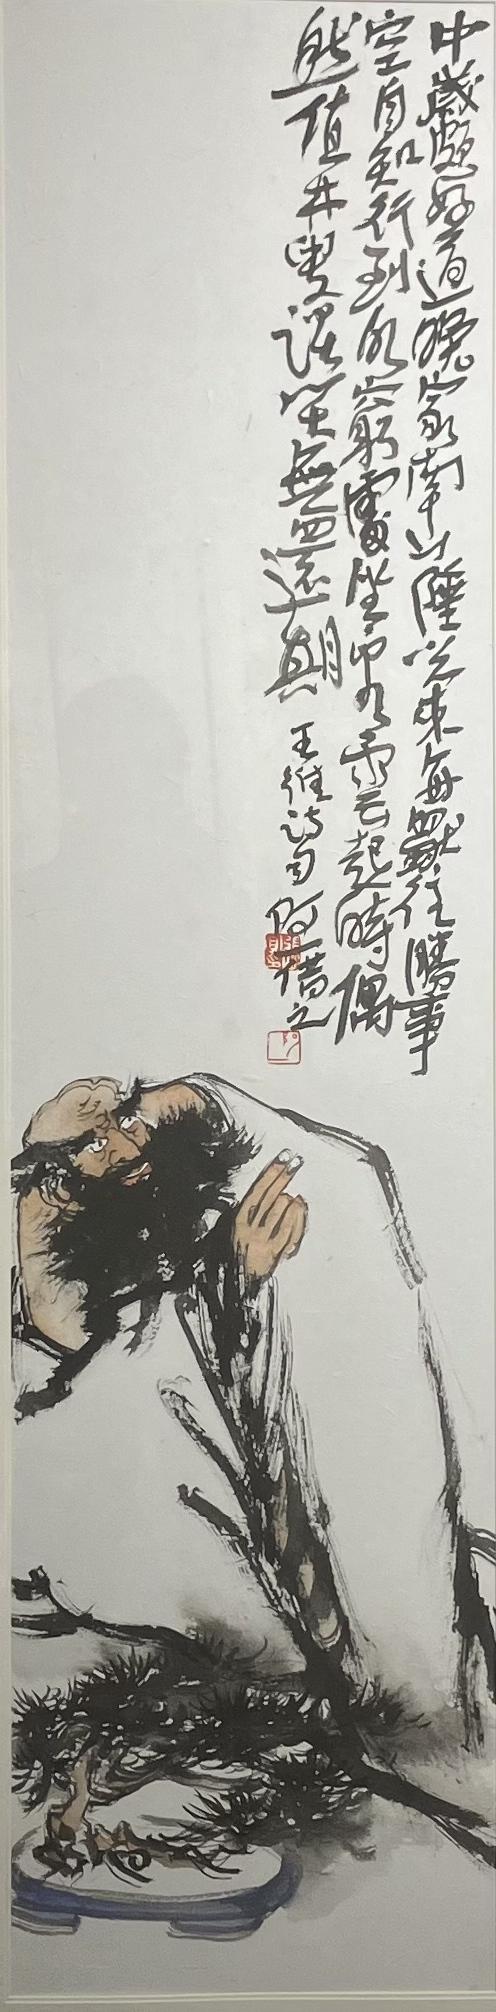 中歲頗好道晚家南山陲兴来每獨往勝事
空自知行到水窮處坐看雲起時偶
然值林叟谈笑無還期 王維诗句 阿借之